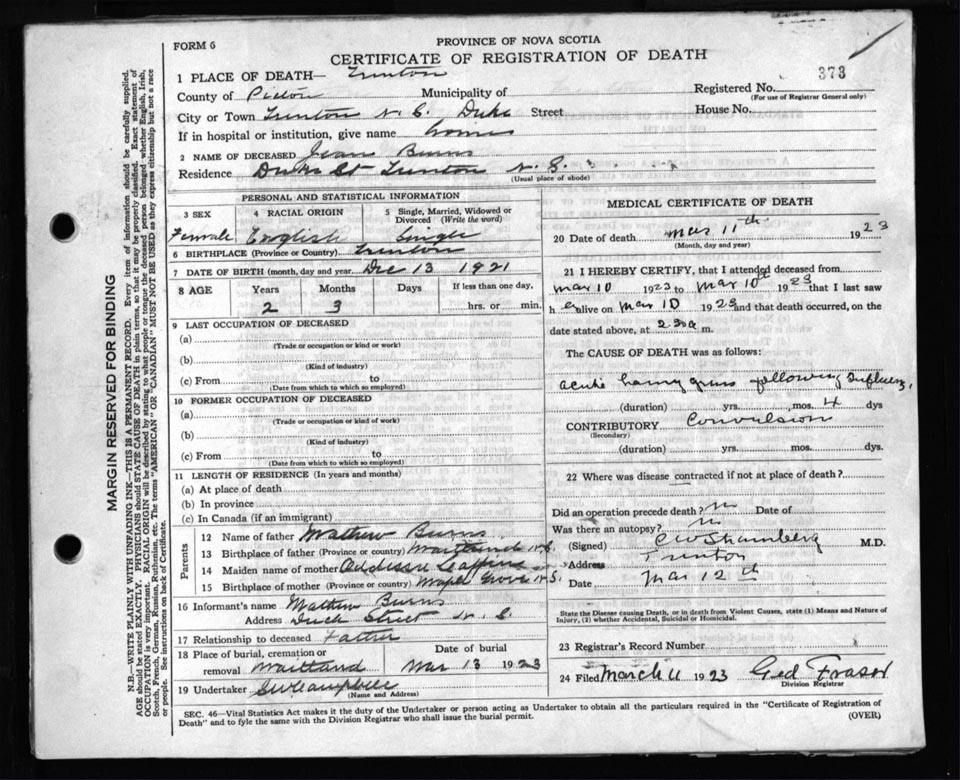 FORM 6
PROVINCE OF NOVA SCOTIA
CERTIFICATE OF REGISTRATION OF DEATH
373
1 PLACE OF DEATH— Trenton
County of Pictou Municipality of
Registered No.
(For use of Registrar General only)
City or Town Trenton N. S. Duke Street
House No.
If in hospital or institution, give name home
2 NAME OF DECEASED Jean Burns
Residence Duke St Trenton N. S.
(Usual place of abode)
PERSONAL AND STATISTICAL INFORMATION
3 SEX
4 RACIAL ORIGIN
5 Single, Married, Widowed or Divorced (Write the word)
Female English Single
6 BIRTHPLACE (Province or Country) Trenton
7 DATE OF BIRTH (month, day and year) Dec 13 1921
8 AGE Years Months Days If less than one day,
2 3 hrs. or min.
9 LAST OCCUPATION OF DECEASED
(a)
(Trade or occupation or kind or work)
(b)
(Kind of industry)
(c) From to
(Date from which to which so employed)
10 FORMER OCCUPATION OF DECEASED
(a)
(Trade or occupation or kind of work)
(b)
(Kind of industry)
(c) From to
(Date from which to which so employed)
11 LENGTH OF RESIDENCE (In years and months)
(a) At place of death
(b) In province
(c) In Canada (if an immigrant)
Parents
12 Name of father Mathew Burns
13 Birthplace of father (Province or country) Maitland N.S.
14 Maiden name of mother
15 Birthplace of mother (Province or country) Maple Grove N.S.
16 Informant's name Mathew Burns
Address Street N. S.
17 Relationship to deceased Father
18 Place of burial, cremation or removal Maitland
Date of burial
Mar 13 1923
19 Undertaker Campbell
(Name and Address)
MEDICAL CERTIFICATE OF DEATH
20 Date of death Mar 11th 1923
(Month, day and year)
21 I HEREBY CERTIFY, that I attended deceased from
Mar 10 1923 to Mar 10th 1923 that I last saw
h alive on Mar 10 1923 and that death occurred, on the
date stated above, at 2.30a m.
The CAUSE OF DEATH was as follows:
acute following Influenza
(duration) yrs. mos. 4 dys
CONTRIBUTORY Convulsion
(Secondary)
(duration) yrs. mos. dys.
22 Where was disease contracted if not at place of death?
Did an operation precede death? No Date of
Was there an autopsy? No
(Signed) M.D.
Address Trenton
Date Mar 12th
State the Disease causing Death, or in death from Violent Causes, state (1) Means and Nature of
Injury, (2) whether Accidental, Suicidal or Homicidal.
23 Registrar's Record Number
24 Filed March 11 1923 Ged Fraser
Division Registrar
SEC. 46—Vital Statistics Act makes it the duty of the Undertaker or person acting as Undertaker to obtain all the particulars required in the "Certificate of Registration of
Death" and to fyle the same with the Division Registrar who shall issue the burial permit.
(OVER)
MARGIN RESERVED FOR BINDING
N.B.—WRITE PLAINLY WITH UNFADING INK—THIS IS A PERMANENT RECORD. Every item of information should be carefully supplied.
AGE should be stated EXACTLY. PHYSICIANS should STATE CAUSE OF DEATH in plain terms, so that it may be properly classified. Exact statement of
OCCUPATION is very important. RACIAL ORIGIN will be described by stating to what people or tongue the deceased person belonged whether English, Irish,
Scotch, French, German, Russian, Ruthenian, etc. The terms "AMERICAN" OR "CANADIAN" MUST NOT BE USED as they express citizenship but not a race
or people. See instructions on back of Certificate.